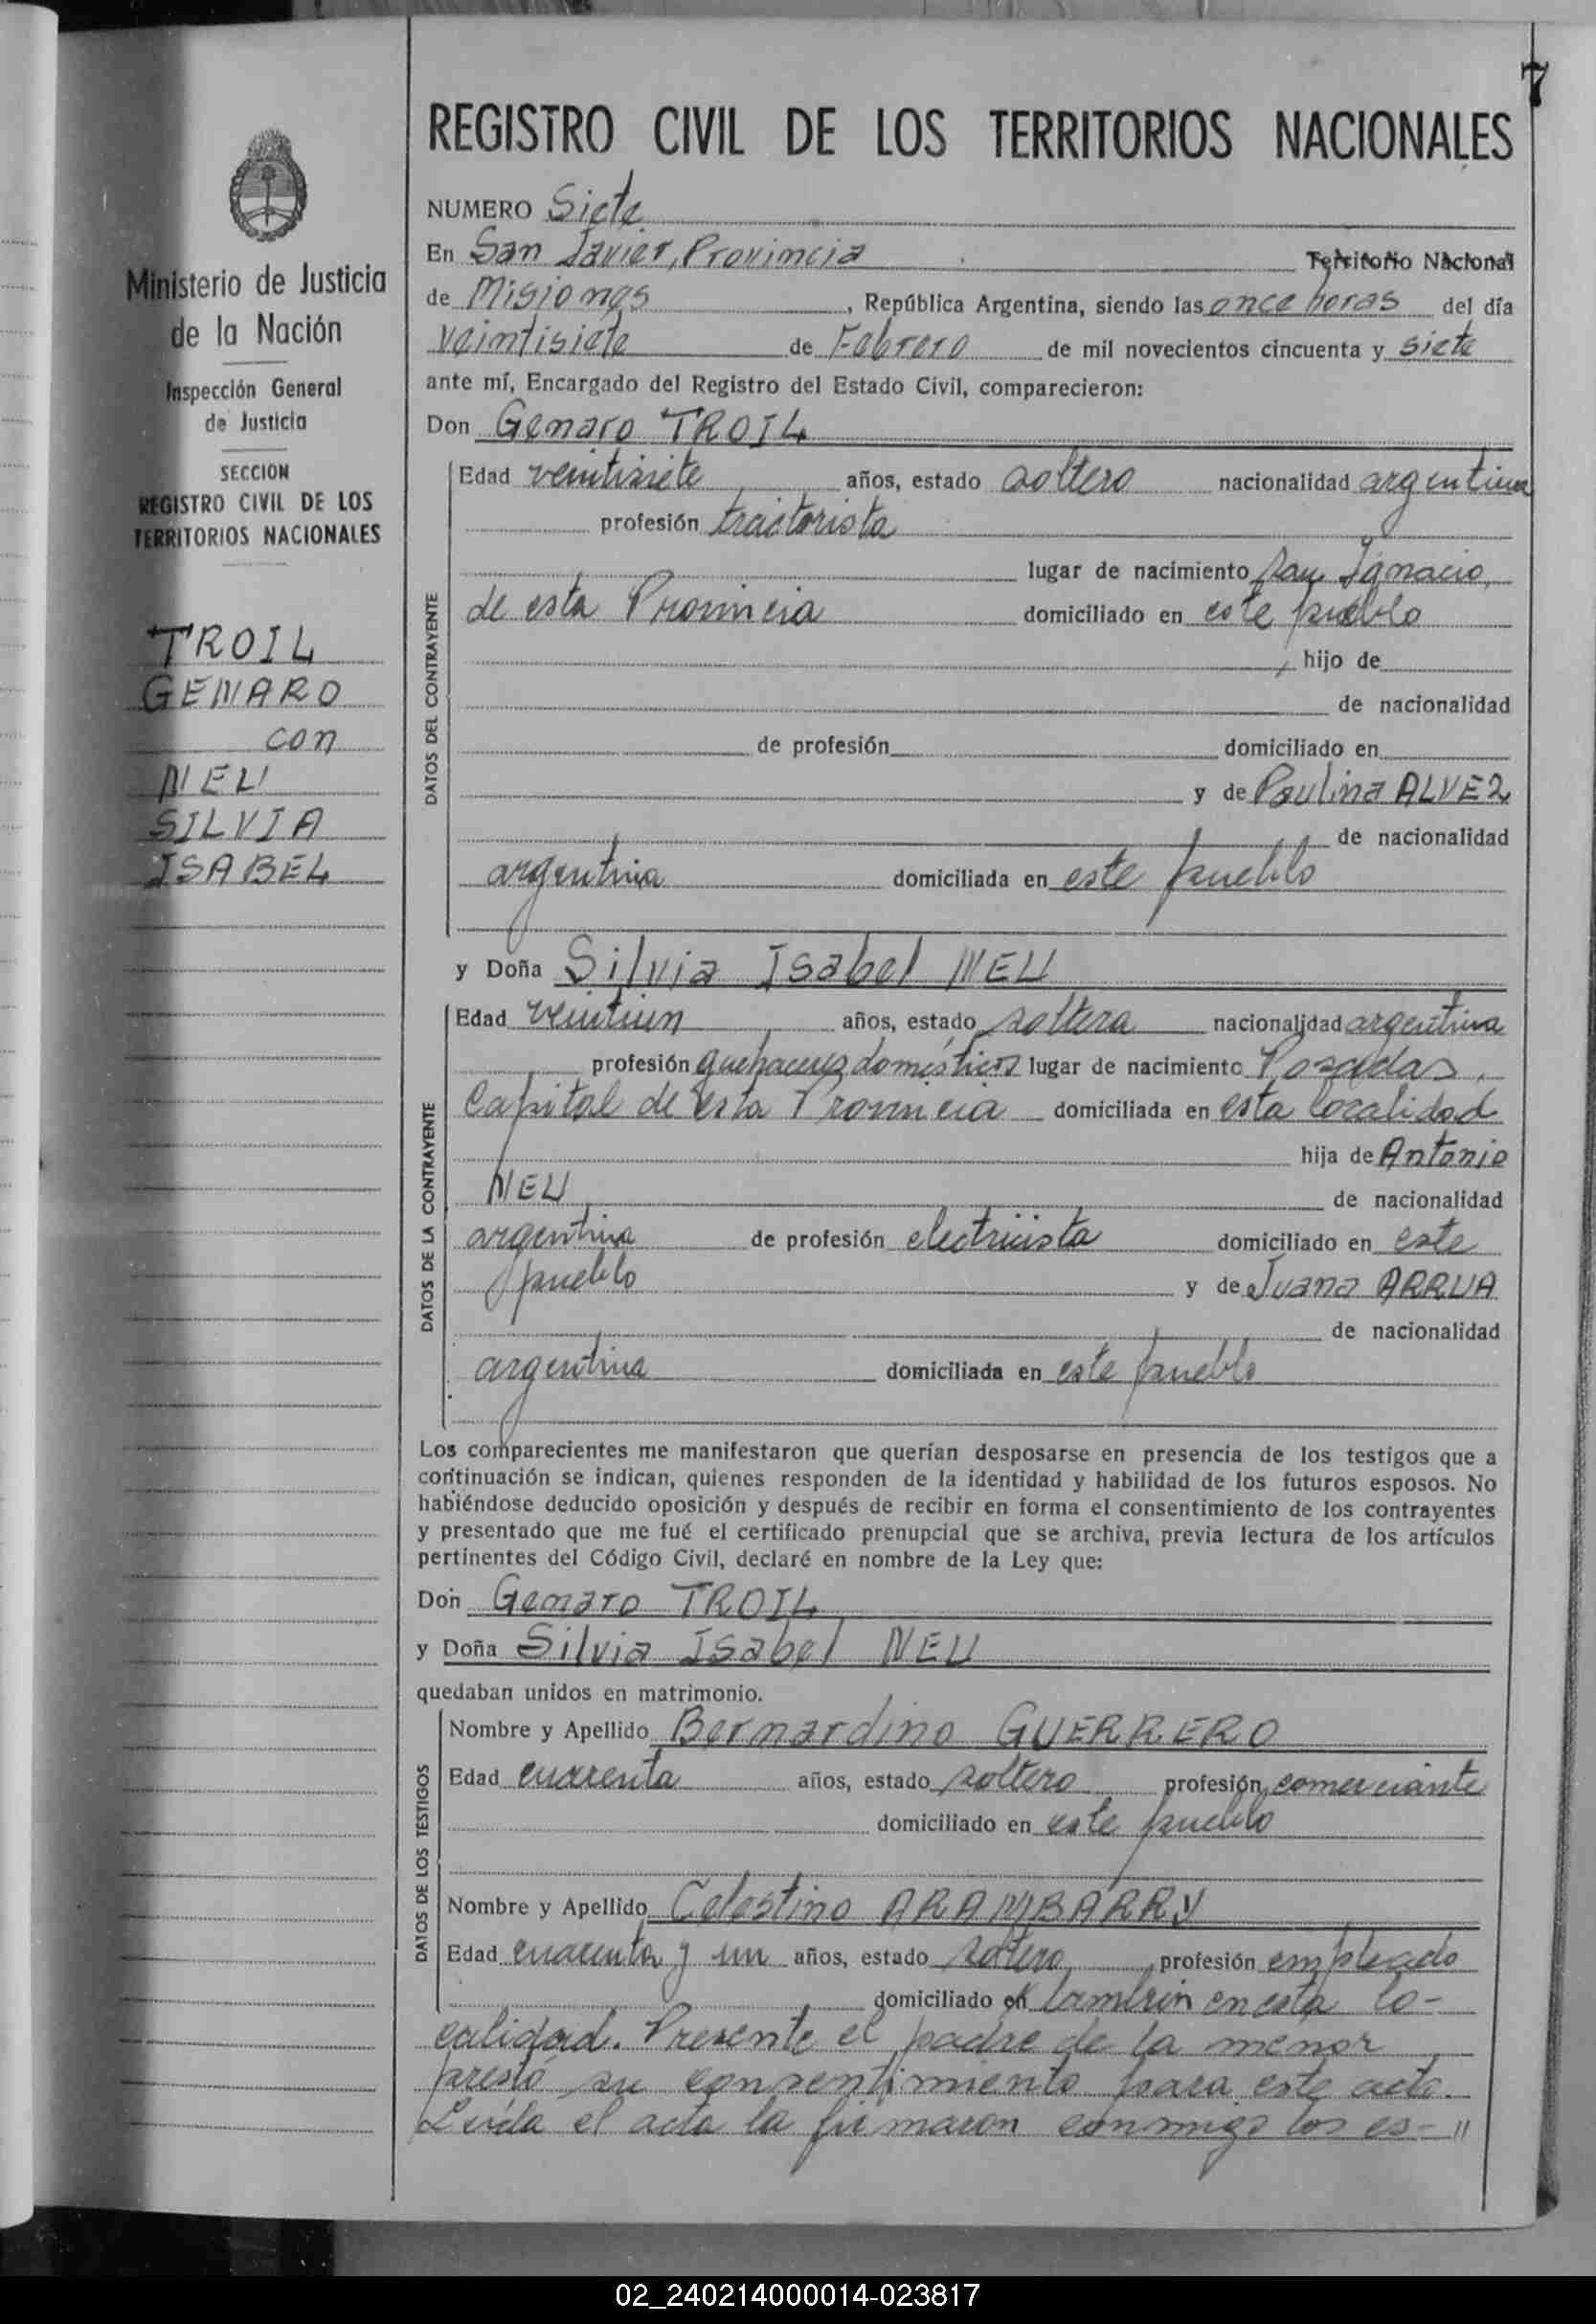 7
REGISTRO CIVIL DE LOS TERRITORIOS NACIONALES
Ministerio de Justicia
de la Nación
Inspección General
de Justicia
SECCION
REGISTRO CIVIL DE LOS
TERRITORIOS NACIONALES
TROIL
GENARO
con
NEU
SILVIA
ISABEL
NUMERO Siete
En San Javier, Provincia Territorio Nacional
de Misiones, República Argentina, siendo las once horas del día
veintisiete de Febrero de mil novecientos cincuenta y siete
ante mí, Encargado del Registro del Estado Civil, comparecieron:
Don Genaro TROIL
DATOS DEL CONTRAYENTE
Edad veintisiete años, estado soltero nacionalidad argentina
profesión tractorista
lugar de nacimiento San Ignacio,
de esta Provincia domiciliado en este pueblo
, hijo de
de nacionalidad
de profesión domiciliado en
y de Paulina ALVEZ
de nacionalidad
argentina domiciliada en este pueblo
y Doña Silvia Isabel NEU
DATOS DE LA CONTRAYENTE
Edad veintiun años, estado soltera nacionalidad argentina
profesión quehaceres domésticos lugar de nacimiento Posadas,
Capital de esta Provincia domiciliada en esta localidad
hija de Antonio
NEU de nacionalidad
argentina de profesión electricista domiciliado en este
pueblo y de Juana ARRUA
de nacionalidad
argentina domiciliada en este pueblo
Los comparecientes me manifestaron que querían desposarse en presencia de los testigos que a
continuación se indican, quienes responden de la identidad y habilidad de los futuros esposos. No
habiéndose deducido oposición y después de recibir en forma el consentimiento de los contrayentes
y presentado que me fué el certificado prenupcial que se archiva, previa lectura de los artículos
pertinentes del Código Civil, declaré en nombre de la Ley que:
Don Genaro TROIL
y Doña Silvia Isabel NEU
quedaban unidos en matrimonio.
DATOS DE LOS TESTIGOS
Nombre y Apellido Bernardino GUERRERO
Edad cuarenta años, estado soltero profesión comerciante
domiciliado en este pueblo
Nombre y Apellido Celestino ARAMBARRY
Edad cuarenta y un años, estado soltero profesión empleado
domiciliado en también en esta lo-
calidad. Presente el padre de la menor
prestó su consentimiento para este acto.
Leída el acta la firmaron conmigo los es-"
02_240214000014-023817